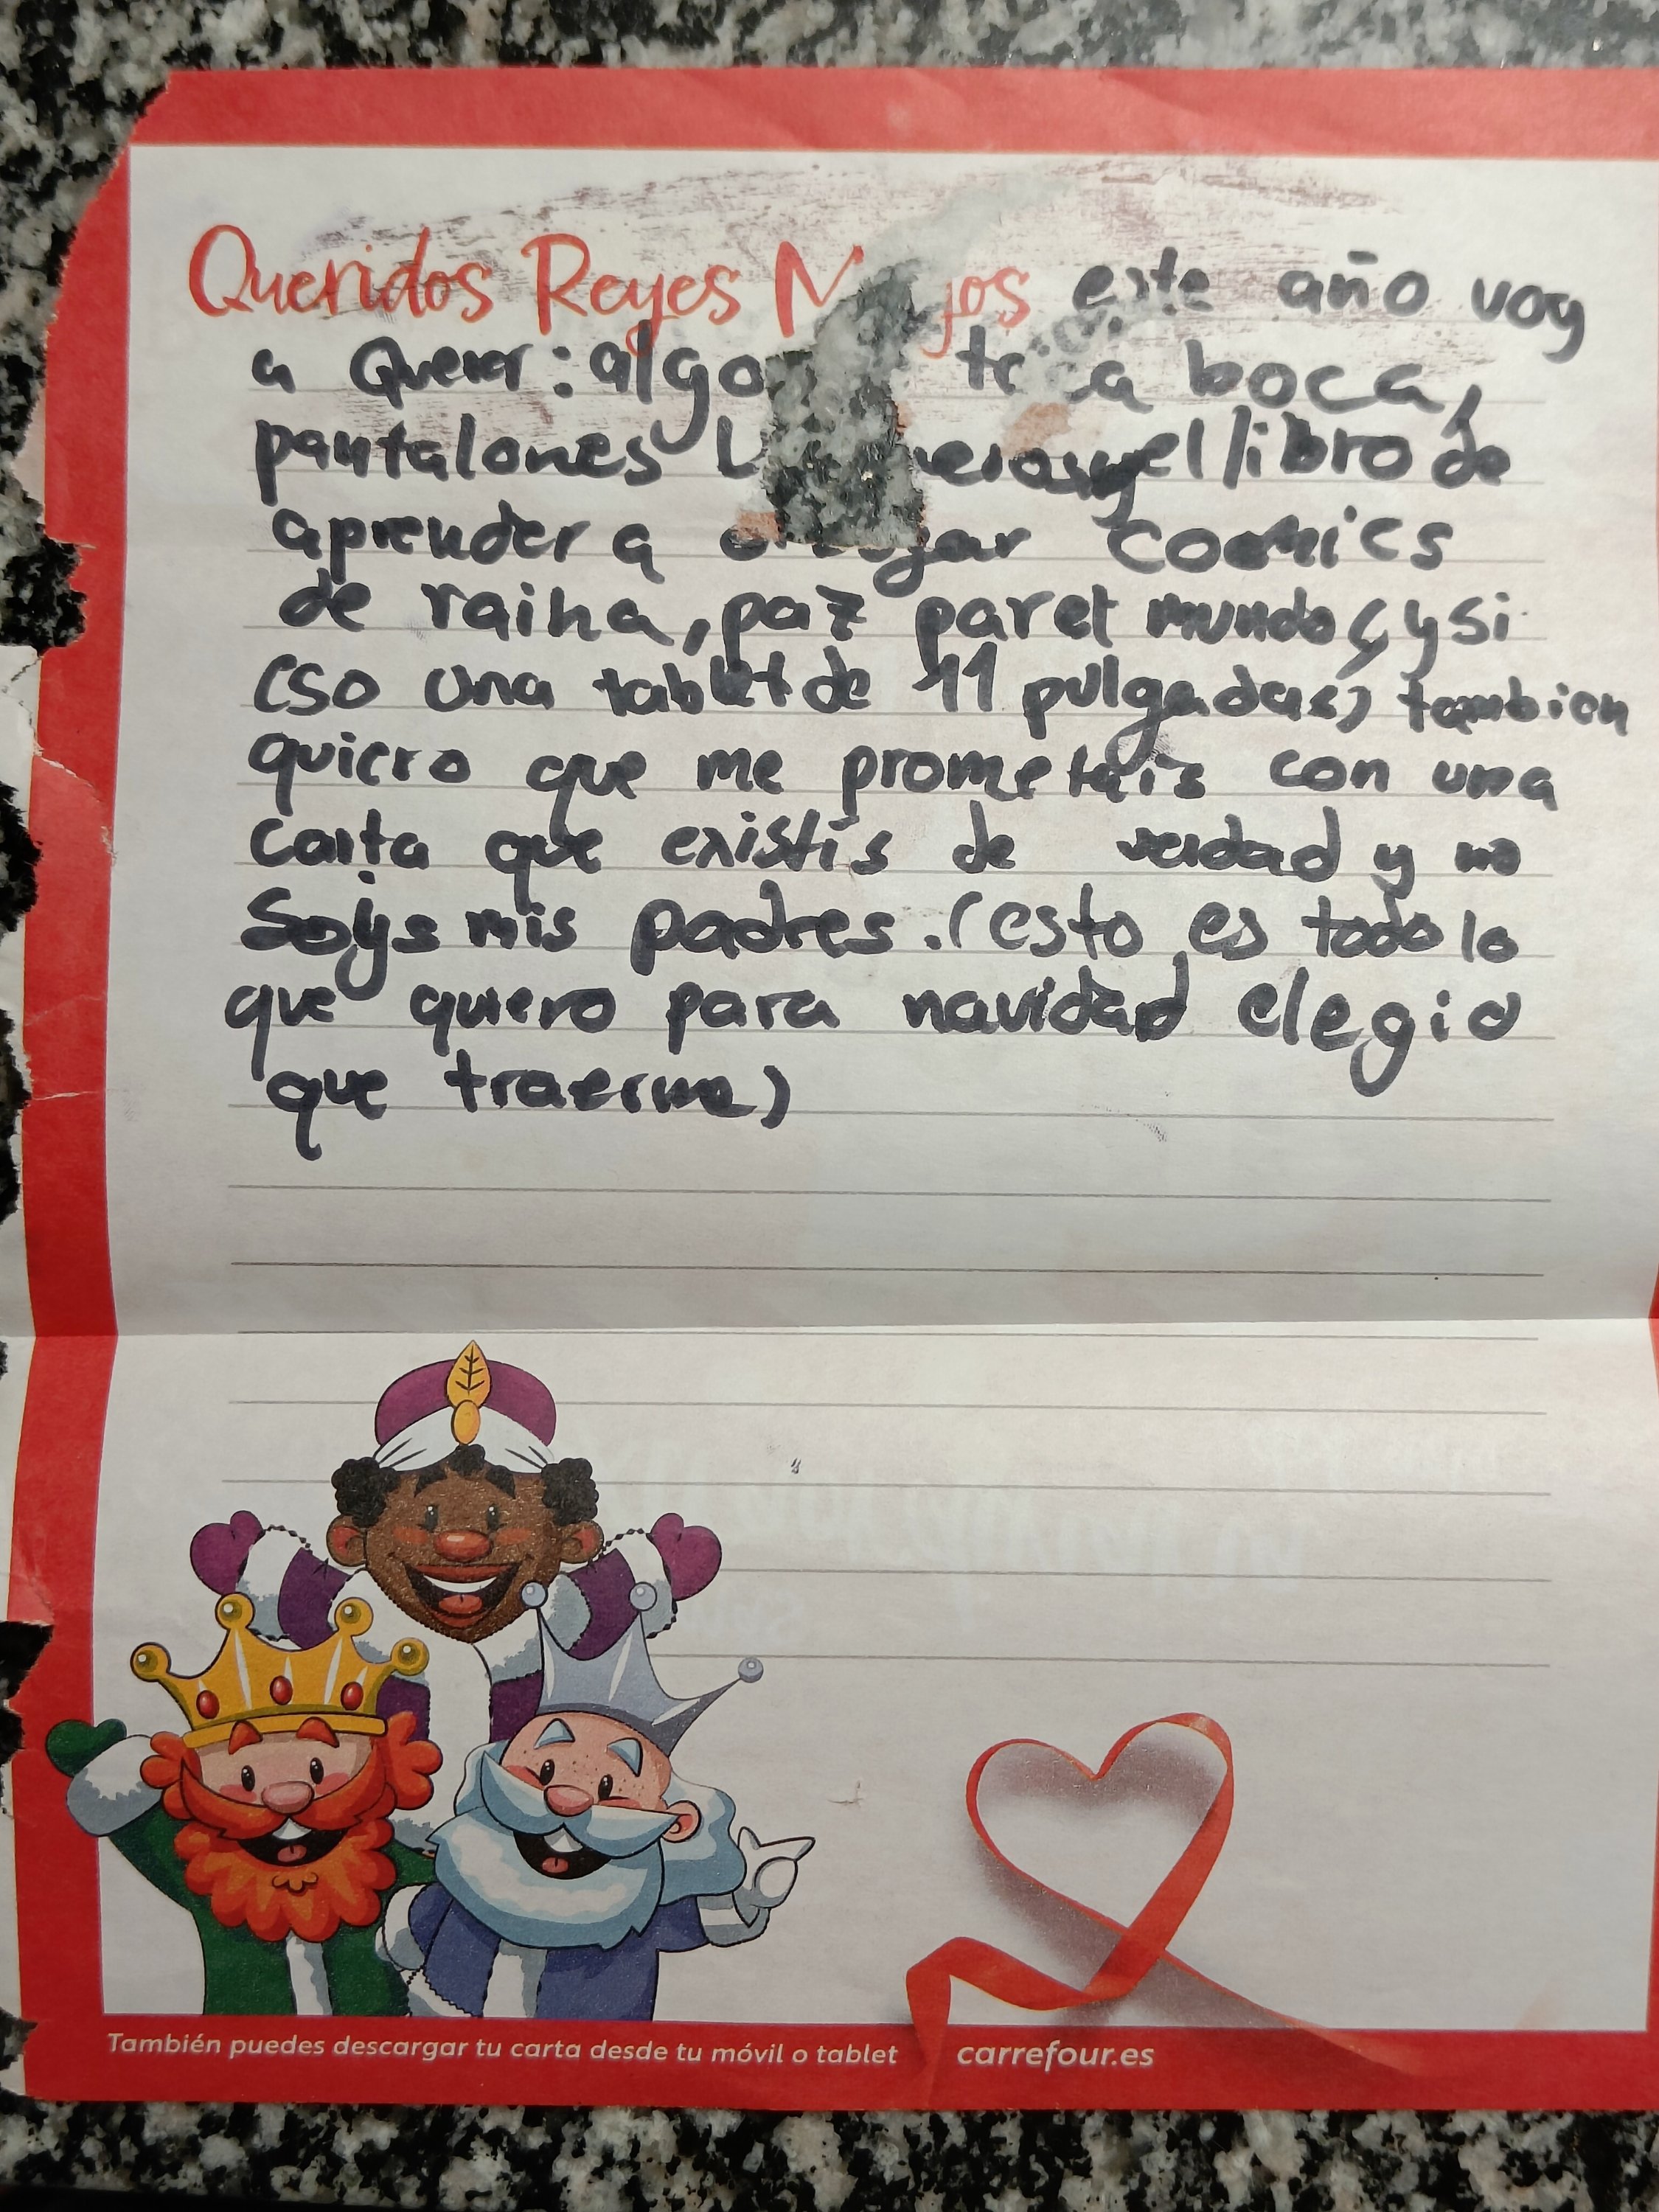 Queridos Reyes este año voy
a Querer: algo boca,
pantalones y el libro de
aprender a comics
de raina, paz par el mundo, (y si
eso una tablet de 11 pulgadas) tambien
quiero que me prometais con una
carta que existís de verdad y no
Soys mis padres. (esto es todo lo
que quiero para navidad elegid
que traerme)
También puedes descargar tu carta desde tu móvil o tablet carrefour.es